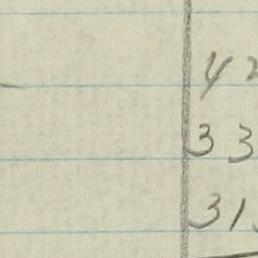 42
33
31